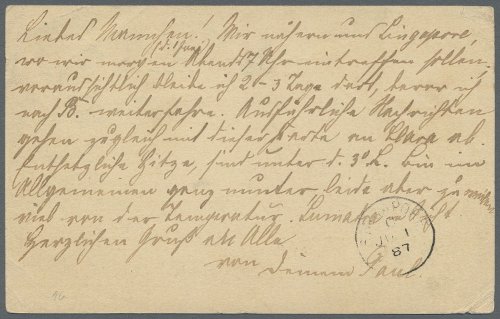 Liebes Mannchen! Wir nähern uns Singapore,
(d. 1 Juni)
wo wir morgen Abends 7 Uhr eintreffen sollen,
voraussichtlich bleibe ich 2-3 Tage dort, bevor ich
nach B. weiterfahre. Ausführliche Nachrichten
gehen zugleich mit dieser Karte an Clara ab.
Entsetzliche Hitze, sind unter d. 3° Br. Bin im
Allgemeinen ganz munter, leide aber zu
viel von der Temperatur. Sumatra
Herzlichen Gruß an Alle
von Deinem Paul.
SINGAPORE
JU 1
87